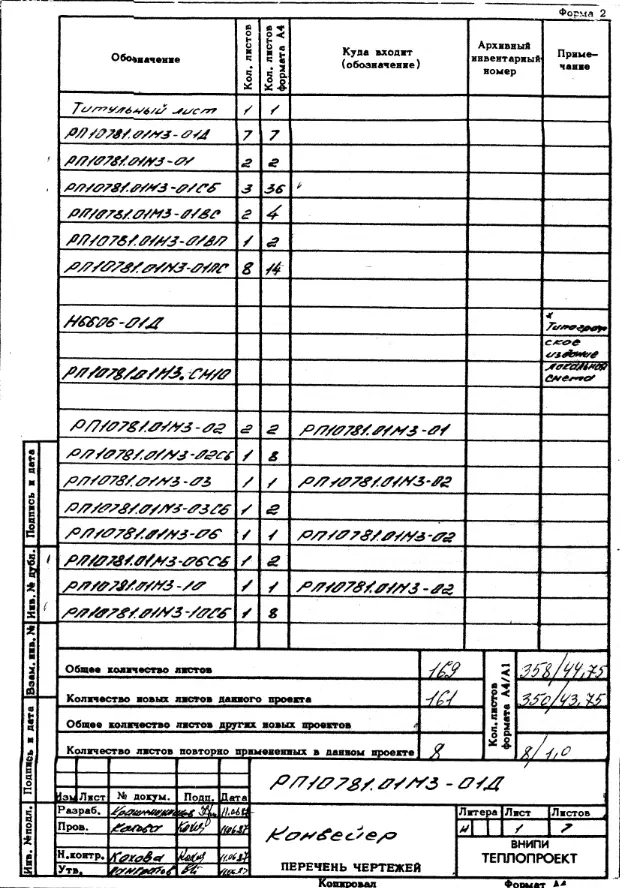 Форма 2
Обозначение
Кол. листов
Кол. листов формата А4
Куда входит (обозначение)
Архивный инвентарный номер
Примечание
Титульный лист 1 1
РП10781.01МЗ-01Д 7 7
РП10781.01МЗ-01 2 2
РП10781.01МЗ-01СБ 3 36
РП10781.01МЗ-01ВС 2 4
РП10781.01МЗ-01ВП 1 2
РП10781.01МЗ-01ПС 8 14
Н6606-01Д
ское
издание
локальной
смета
РП10781.01МЗ.СМ10
РП10781.01МЗ-02 2 2 РП10781.01МЗ-01
РП10781.01МЗ-02СБ 1 8
РП10781.01МЗ-03 1 1 РП10781.01МЗ-02
РП10781.01МЗ-03СБ 1 2
РП10781.01МЗ-06 1 1 РП10781.01МЗ-02
РП10781.01МЗ-06СБ 1 2
РП10781.01МЗ-10 1 1 РП10781.01МЗ-02
РП10781.01МЗ-10СБ 1 8
Общее количество листов 169
Количество новых листов данного проекта 161
Общее количество листов других новых проектов
Количество листов повторно примененных в данном проекте 8
Кол. листов формата А4/А1
358/44,75
350/43,75
8/1,0
Инв. №подл.
Подпись и дата
Взам. инв. №
Инв. № дубл.
Подпись и дата
РП10781.01МЗ-01Д
Изм Лист № докум. Подп. Дата
Разраб. 11.06.87
Пров.
Н.контр. Кохова
Утв.
Конвейер
ПЕРЕЧЕНЬ ЧЕРТЕЖЕЙ
Литера Лист Листов
И 1 7
ВНИПИ
ТЕПЛОПРОЕКТ
Копировал Формат А4